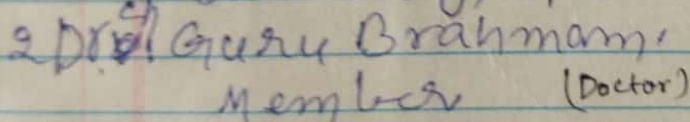 2 Dr. Guru Brahmam.
Member (Doctor)